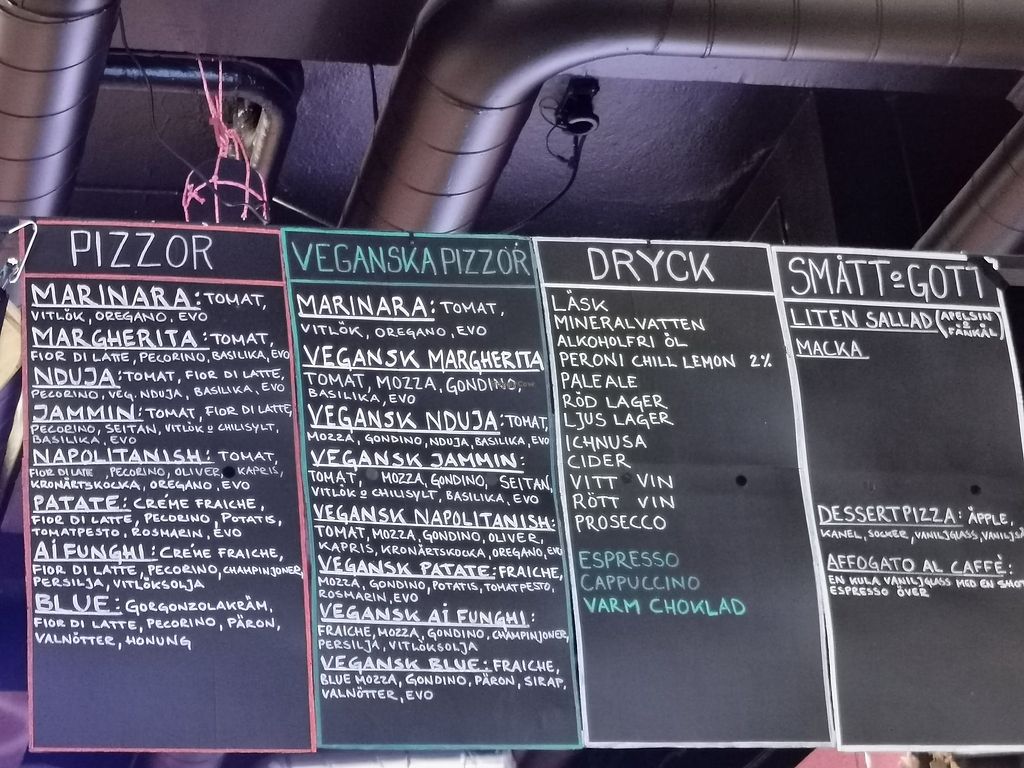 PIZZOR
MARINARA: TOMAT,
VITLÖK, OREGANO, EVO
MARGHERITA: TOMAT,
FIOR DI LATTE, PECORINO, BASILIKA, EVO
NDUJA: TOMAT, FIOR DI LATTE,
PECORINO, VEG. NDUJA, BASILIKA, EVO
JAMMIN: TOMAT, FIOR DI LATTE,
PECORINO, SEITAN, VITLÖK & CHILISYLT,
BASILIKA, EVO
NAPOLITANISH: TOMAT,
FIOR DI LATE, PECORINO, OLIVER, KAPRIS,
KRONÄRTSKOCKA, OREGANO, EVO
PATATE: CRÉME FRAICHE,
FIOR DI LATTE, PECORINO, POTATIS,
TOMATPESTO, ROSMARIN, EVO
AI FUNGHI: CRÉME FRAICHE,
FIOR DI LATTE, PECORINO, CHAMPINJONER,
PERSILJA, VITLÖKSOLJA
BLUE: GORGONZOLAKRÄM,
FIOR DI LATTE, PECORINO, PÄRON,
VALNÖTTER, HONUNG
VEGANSKA PIZZOR
MARINARA: TOMAT,
VITLÖK, OREGANO, EVO
VEGANSK MARGHERITA
TOMAT, MOZZA, GONDINO,
BASILIKA, EVO
VEGANSK NDUJA: TOMAT,
MOZZA, GONDINO, NDUJA, BASILIKA, EVO
VEGANSK JAMMIN:
TOMAT, MOZZA, GONDINO, SEITAN,
VITLÖK & CHILISYLT, BASILIKA, EVO
VEGANSK NAPOLITANISH:
TOMAT, MOZZA, GONDINO, OLIVER,
KAPRIS, KRONÄRTSKOCKA, OREGANO, EVO
VEGANSK PATATE: FRAICHE,
MOZZA, GONDINO, POTATIS, TOMATPESTO,
ROSMARIN, EVO
VEGANSK AI FUNGHI:
FRAICHE, MOZZA, GONDINO, CHAMPINJONER,
PERSILJA, VITLÖKSOLJA
VEGANSK BLUE: FRAICHE,
BLUE MOZZA, GONDINO, PÄRON, SIRAP,
VALNÖTTER, EVO
DRYCK
LÄSK
MINERALVATTEN
ALKOHOLFRI ÖL
PERONI CHILL LEMON 2%
PALE ALE
RÖD LAGER
LJUS LAGER
ICHNUSA
CIDER
VITT VIN
RÖTT VIN
PROSECCO
ESPRESSO
CAPPUCCINO
VARM CHOKLAD
SMÅTT & GOTT
LITEN SALLAD (APELSIN & FÄNKÅL)
MACKA
DESSERTPIZZA: ÄPPLE,
KANEL, SOCKER, VANILJGLASS, VANILJSÅ
AFFOGATO AL CAFFÈ:
EN KULA VANILJGLASS MED EN SHOT
ESPRESSO ÖVER